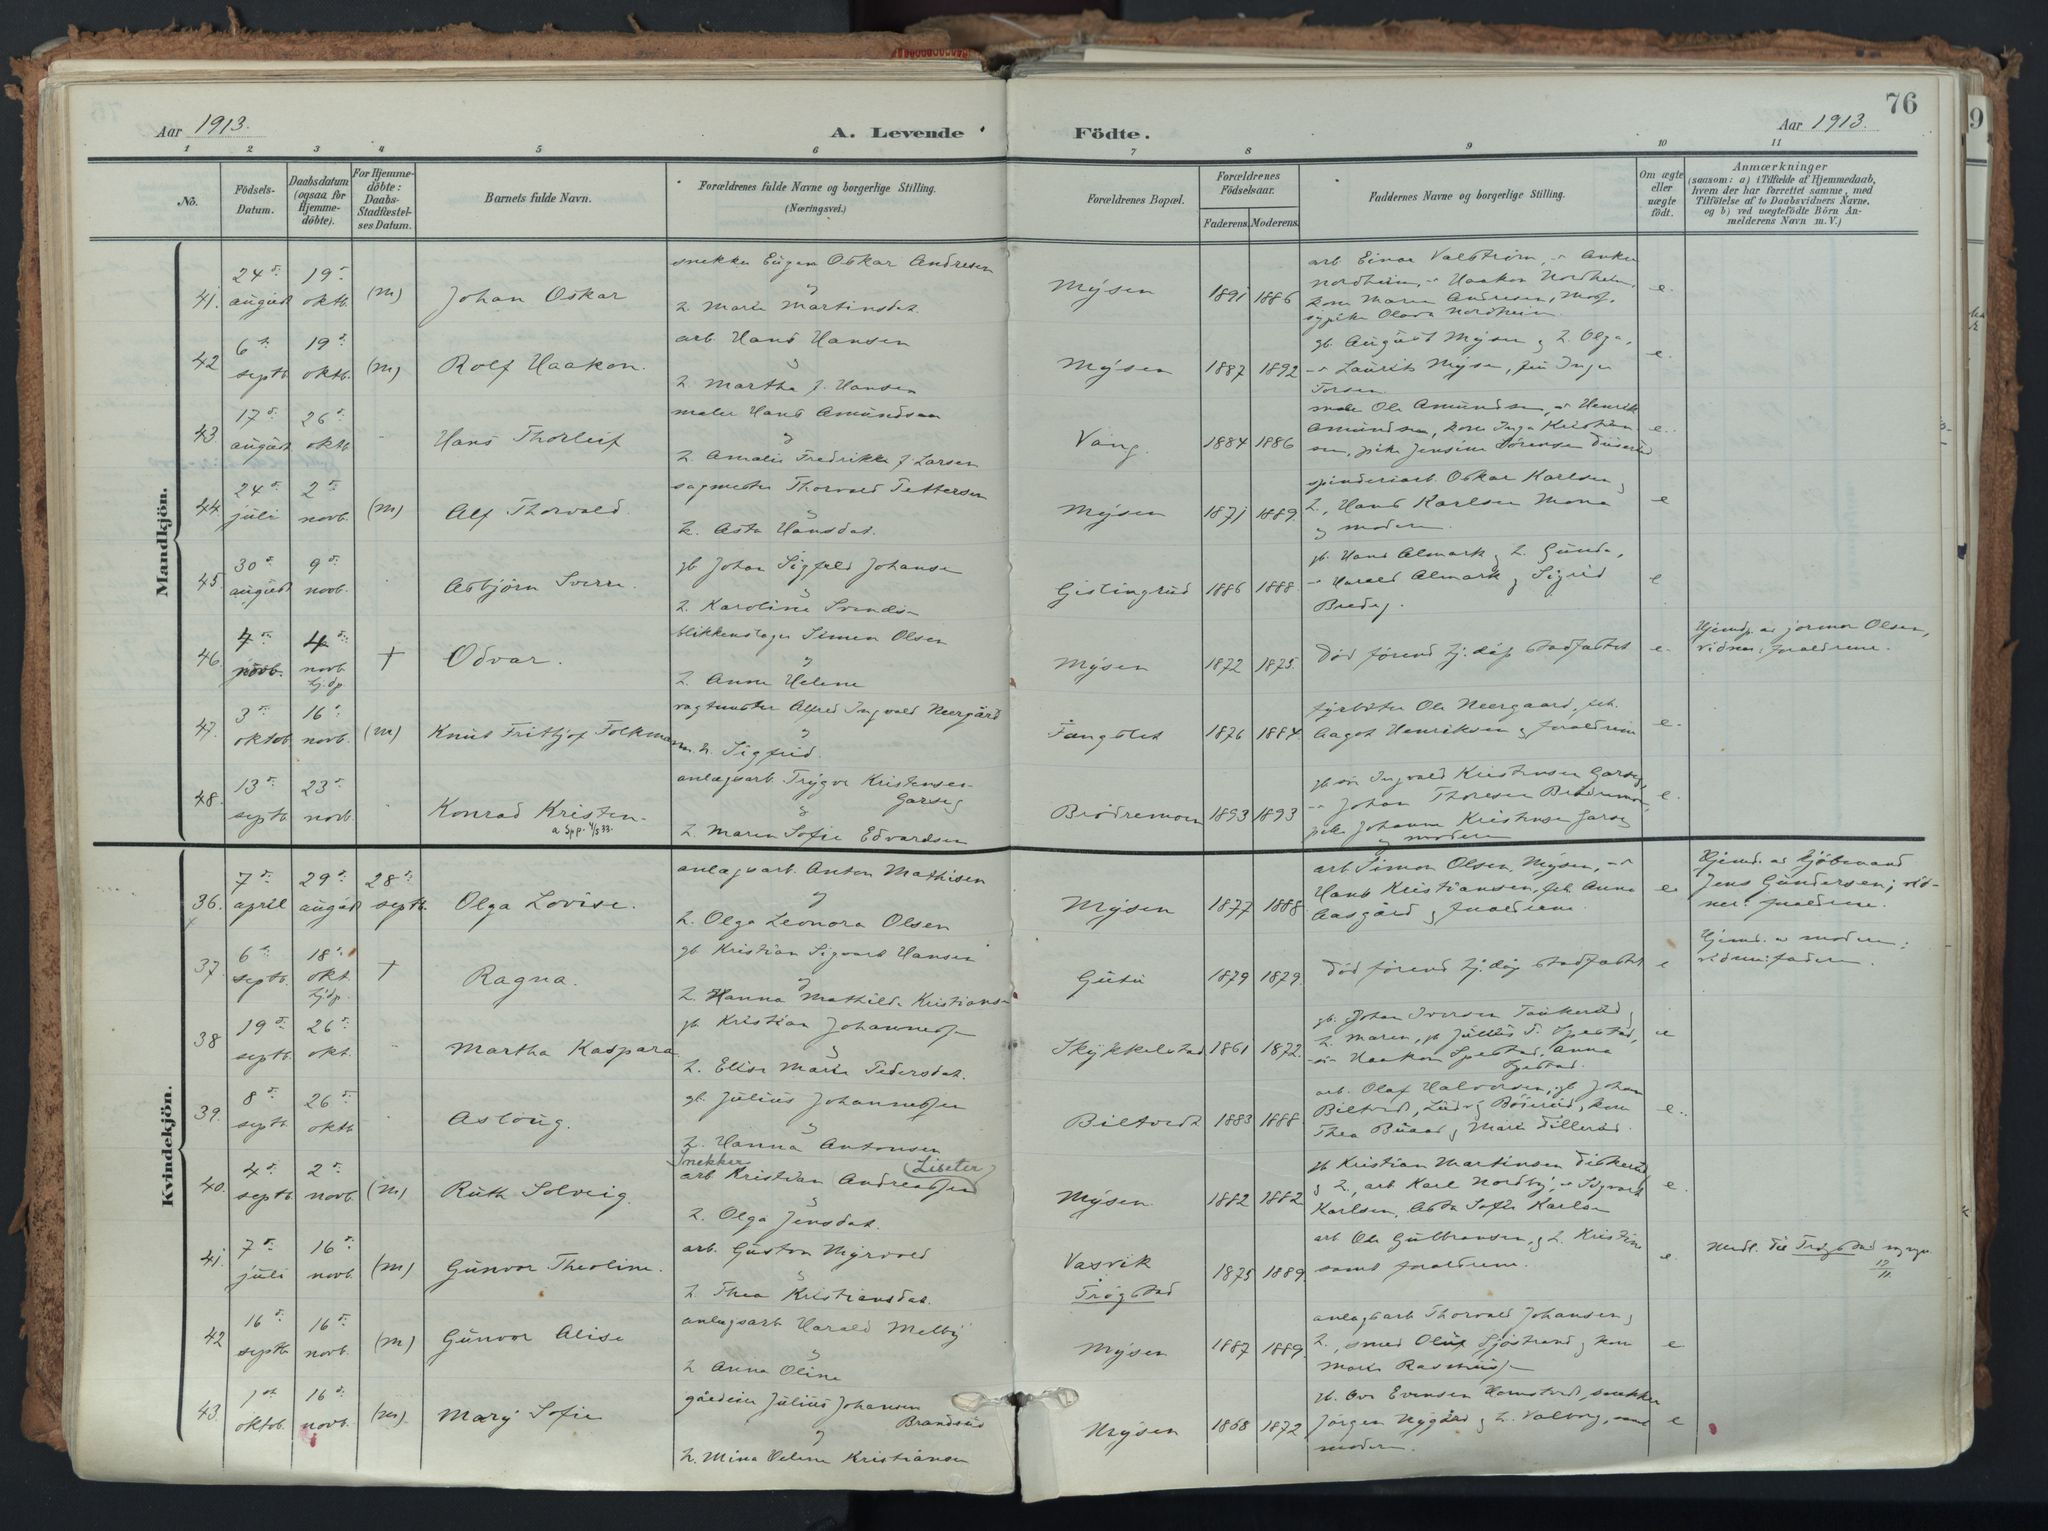 76
Aar 1913.
A. Levende Födte.
Aar 1913.
1 2 3 4 5 6 7 8 9 10 11
No.
Födsels-Datum.
Daabsdatum (ogsaa for Hjemmedöbte).
For Hjemmedöbte: Daabs-Stadfæstelses Datum.
Barnets fulde Navn.
Forældrenes fulde Navne og borgerlige Stilling. (Næringsvei.)
Forældrenes Bopæl.
Forældrenes Födselsaar.
Faderens. Moderens.
Faddernes Navne og borgerlige Stilling.
Om ægte eller uægte födt.
Anmærkninger
(saasom: a) i Tilfælde af Hjemmedaab,
hvem der har forrettet samme, med
Tilföielse af to Daabsvidners Navne,
og b) ved uægtefödte Börn Anmelderens Navn m. V.)
Mandkjön.
41. 24 august 19 oktb. (m) Johan Oskar
snekker Eugen Oskar Andresen
og
h. Marie Martinsdat.
Mysen 1891 1886
arb Einar Valström,
Nordheim, Haakon Nordheim,
kone Maren Andresen, Mos.,
sypike Olava Nordheim
e.
42 6 septb. 19 oktb. (m) Rolf Haakon.
arb. Hans Hansen
og
h. Martha J. Hansen
Mysen 1887 1892
gb. August Mysen og h. Olga,
Laurits Mysen, Inga
Torsen
e.
43. 17 august 26 oktb. Hans Thorleif
maler Hans Amundsen
og
h. Amalie Fredrikke J. Larsen
Vang. 1884 1886
Ole Amundsen, Henrik
Amundsen, kone Inga Kristian
sen, pike Jensine Sörensen
e.
44. 24 juli 2 novb. (m) Alf Thorvald.
sagmester Thorvald Pettersen
og
h. Asta Hansdat.
Mysen 1871 1889.
spinderiarb. Oskar Karlsen og
h., Hans Karlsen Mona
og moderen.
e
45. 30 august 9 novb. Asbjörn Sverre.
gb Johan Sigfeld Johansen
og
h. Karoline Svends-
Gislingrud 1886 1888
gb. Hans Almark og h. Gunda,
Harald Almark og Sigrid
e
46. 4 novb. 4 novb. hj.dp + Odvar.
blikkenslager Simen Olsen
og
h. Anne Helene
Mysen 1872 1875.
Död förend hj.dåp stadfæstet
e.
Hjemdp. av jormor Olsen,
vidner: forældrene.
47. 3 oktob. 16 novb. (m) Knut Fritjof Folkmann
vagtmester Alfred Ingvald Neergård
og
h. Sigfrid.
Fangslet 1876 1884.
fyrböter Ole Neergaard, frk.
Aagot Henriksen og forældrene
e.
48. 13 septb. 23 novb. Konrad Kristen
anlægsarb. Trygve Kristensen
Garseg
og
h. Maren Sofie Edvardsen
Brödremoen 1893 1893
gb Ingvald Kristensen Garseg,
Johan Thoresen Brödremoen,
pike Johanne Kristensen Garseg
og moderen
e.
Kvindekjön.
36. 7 april 29 august 28 septb. Olga Lovise.
anlægsarb. Anton Mathisen
og
h. Olga Leonora Olsen
Mysen 1877 1888
arb Simon Olsen, Mysen,
Hans Kristiansen, frk. Anna
Aasgård og forældrene.
e.
Hjemd. av Kjöbmand
Jens Gundersen; vid-
ner: forældrene.
37. 6 septb. 18 okt. hj.dp. + Ragna.
gb. Kristian Sigvart Hansen
og
h. Hanna Mathilde Kristians-
Gutu 1879 1879.
Död förend hj.dåp stadfæstet
e
Hjemd. av moderen;
vidner: faderen.
38 19 septb. 26 okt. Martha Kaspara
gb. Kristian Johannessen
og
h. Elise Marie Pedersdat.
Skykkelstad 1861 1872.
gb. Johan Iversen og
h. Maren, gb Julius T. Spestad,
Haakon Spestad, Anna
Spestad.
e
39. 8 septb. 26 oktb. Aslaug.
gb. Julius Johannessen
og
h. Hanna Antonsen
Biltvedt 1883 1888.
arb. Olaf Halvorsen, gb Johan
Biltvedt, Ludvig Böserud, kone
Thea Buaas og Marie Dillerud.
e.
40. 4 septb. 2 novb. (m) Ruth Solveig.
Snekker
arb Kristian Andreassen (Liseter)
og
h. Olga Jensdat.
Mysen. 1882 1882
gb Kristian Martinsen
og h., arb. Karl Nordby, Sigvart
Karlsen, Asta Sofie Karlsen
e.
41. 7 juli 16 novb. (m) Gunvor Theoline.
arb. Gustav Myrvold
og
h. Thea Kristiansdat.
Vasvik
Trögstad
1875 1889.
arb Ole Gulbransen, og h. Kristine
samt forældrene.
e.
Medl. til Trögstad
17/11
42 16 septb. 16 novb. (m) Gunvor Alise
anlægsarb Harald Melby
og
h Anna Oline
Mysen 1887 1889.
anlægsarb Thorvald Johansen og
h., smed Oluf Sjöstrand og kone
Marie
e
43. 1 oktob. 16 novb. (m) Mary Sofie
gårdeier Julius Johansen
Brandsrud
og
h. Mina Helene Kristiansen
Mysen 1868 1872
gb. Ove Evensen Homstvedt, snekker
Jörgen Nygård og h. Valborg, samt
moderen.
e